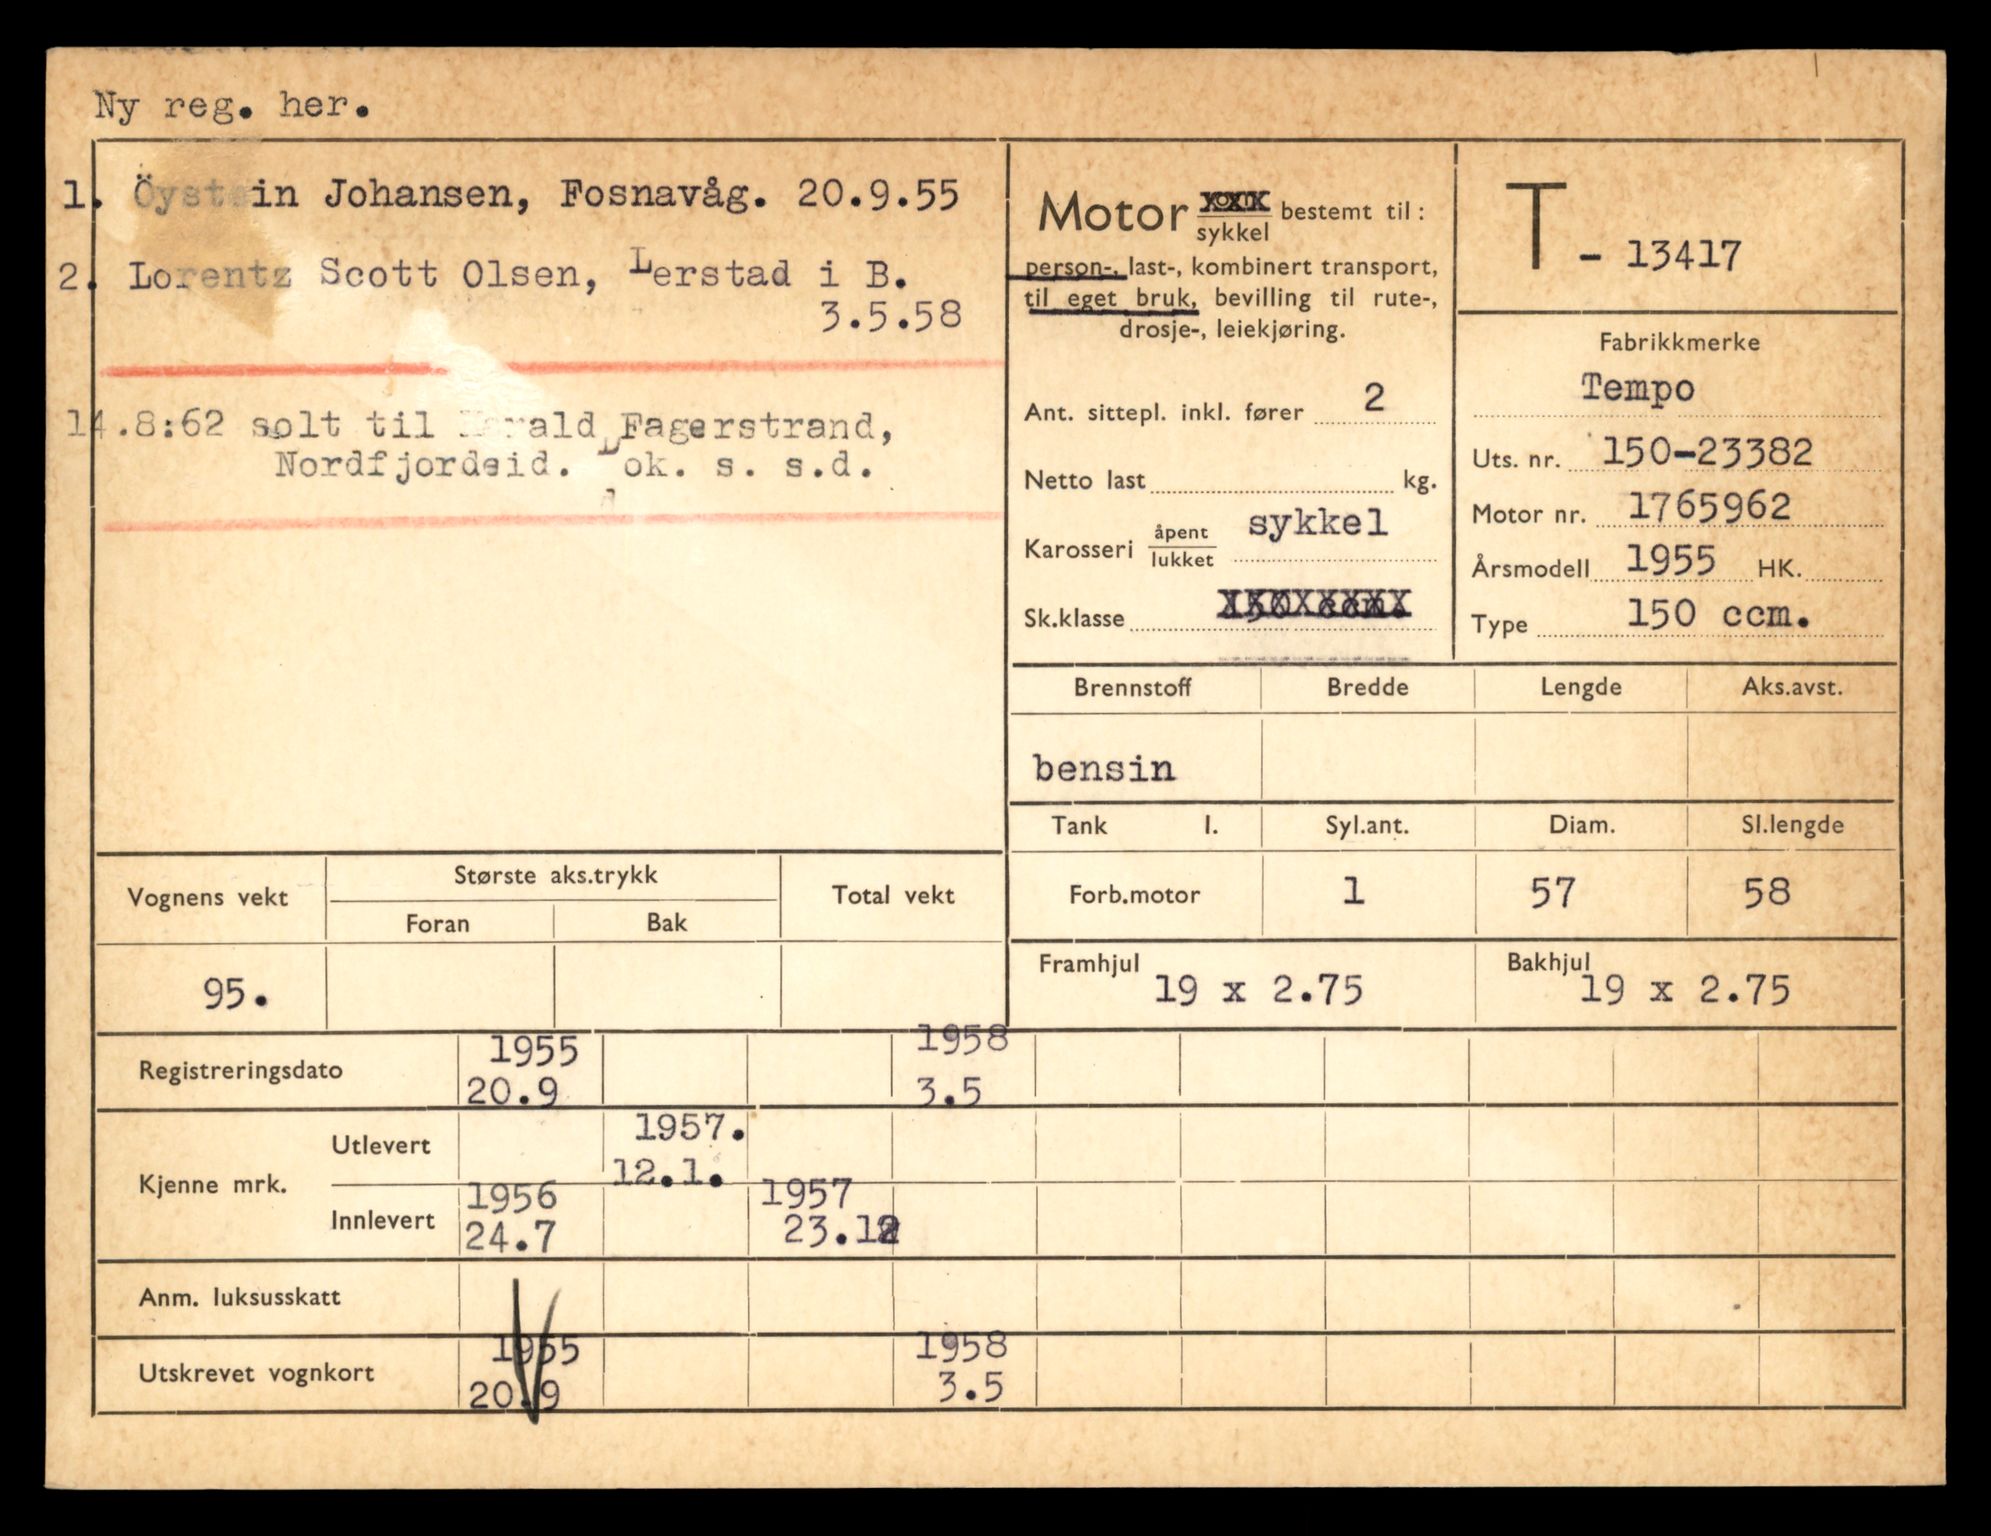 Ny reg. her.
1. Öystein Johansen, Fosnavåg. 20.9.55
2. Lorentz Scott Olsen, Lerstad i B.
3.5.58
14.8:62 solt til Harald Fagerstrand,
Nordfjordeid. Lok. s. s.d.
Motor vogn/sykkel bestemt til:
person-, last-, kombinert transport,
til eget bruk, bevilling til rute-,
drosje-, leiekjøring.
Ant. sittepl. inkl. fører 2
Netto last kg.
Karosseri åpent/lukket sykkel
Sk.klasse 150 ccm.
T - 13417
Fabrikkmerke
Tempo
Uts. nr. 150-23382
Motor nr. 1765962
Årsmodell 1955 HK.
Type 150 ccm.
Brennstoff Bredde Lengde Aks.avst.
bensin
Tank l. Syl.ant. Diam. Sl.lengde
Forb.motor 1 57 58
Framhjul 19 x 2.75 Bakhjul 19 x 2.75
Vognens vekt Største aks.trykk Total vekt
Foran Bak
95.
Registreringsdato 1955 1958
20.9 3.5
Kjenne mrk. Utlevert 1957.
12.1.
Innlevert 1956 1957
24.7 23.12
Anm. luksusskatt
Utskrevet vognkort 1955 1958
20.9 3.5